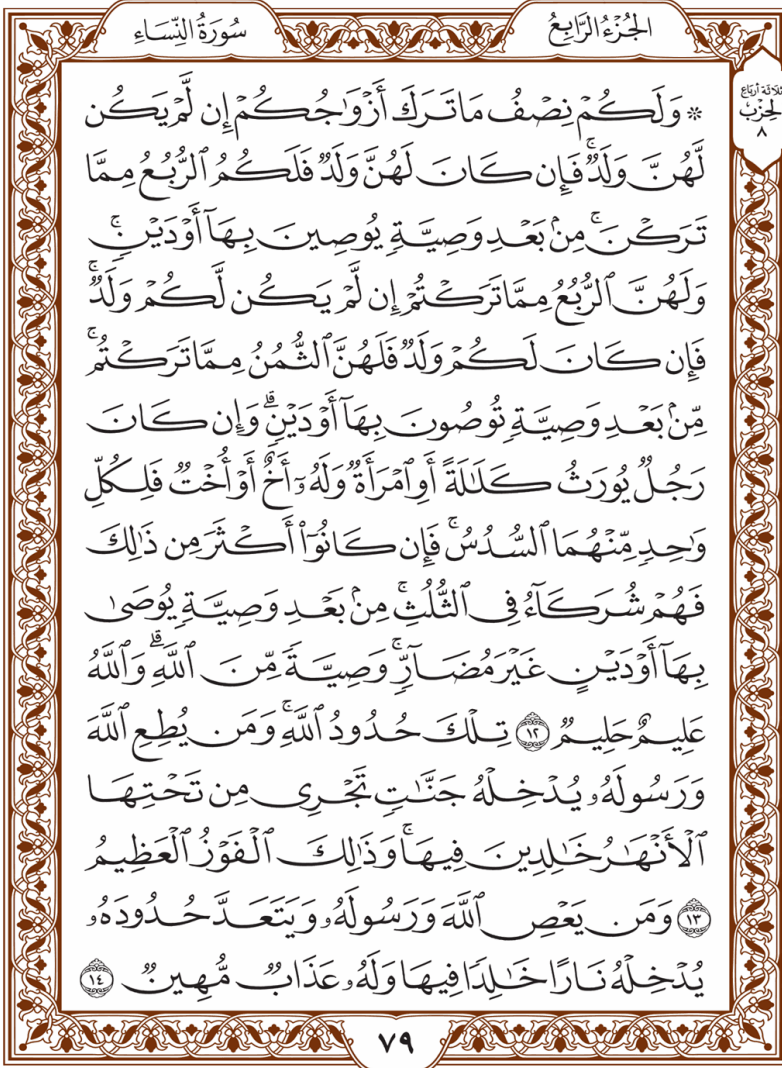 الجُزْءُ الرَّابِعُ
سُورَةُ النِّسَاءِ
ثلاثة أرباع
الحِزْب
٨
۞ وَلَكُمۡ نِصۡفُ مَا تَرَكَ أَزۡوَٰجُكُمۡ إِن لَّمۡ يَكُن
لَّهُنَّ وَلَدٞۚ فَإِن كَانَ لَهُنَّ وَلَدٞ فَلَكُمُ ٱلرُّبُعُ مِمَّا
تَرَكۡنَۚ مِنۢ بَعۡدِ وَصِيَّةٖ يُوصِينَ بِهَآ أَوۡ دَيۡنٖۚ
وَلَهُنَّ ٱلرُّبُعُ مِمَّا تَرَكۡتُمۡ إِن لَّمۡ يَكُن لَّكُمۡ وَلَدٞۚ
فَإِن كَانَ لَكُمۡ وَلَدٞ فَلَهُنَّ ٱلثُّمُنُ مِمَّا تَرَكۡتُمۚ
مِّنۢ بَعۡدِ وَصِيَّةٖ تُوصُونَ بِهَآ أَوۡ دَيۡنٖۗ وَإِن كَانَ
رَجُلٞ يُورَثُ كَلَٰلَةً أَوِ ٱمۡرَأَةٞ وَلَهُۥٓ أَخٌ أَوۡ أُخۡتٞ فَلِكُلِّ
وَٰحِدٖ مِّنۡهُمَا ٱلسُّدُسُۚ فَإِن كَانُوٓاْ أَكۡثَرَ مِن ذَٰلِكَ
فَهُمۡ شُرَكَآءُ فِي ٱلثُّلُثِۚ مِنۢ بَعۡدِ وَصِيَّةٖ يُوصَىٰ
بِهَآ أَوۡ دَيۡنٍ غَيۡرَ مُضَآرّٖۚ وَصِيَّةٗ مِّنَ ٱللَّهِۗ وَٱللَّهُ
عَلِيمٌ حَلِيمٞ ١٢ تِلۡكَ حُدُودُ ٱللَّهِۚ وَمَن يُطِعِ ٱللَّهَ
وَرَسُولَهُۥ يُدۡخِلۡهُ جَنَّٰتٖ تَجۡرِي مِن تَحۡتِهَا
ٱلۡأَنۡهَٰرُ خَٰلِدِينَ فِيهَاۚ وَذَٰلِكَ ٱلۡفَوۡزُ ٱلۡعَظِيمُ
١٣ وَمَن يَعۡصِ ٱللَّهَ وَرَسُولَهُۥ وَيَتَعَدَّ حُدُودَهُۥ
يُدۡخِلۡهُ نَارًا خَٰلِدٗا فِيهَا وَلَهُۥ عَذَابٞ مُّهِينٞ ١٤
٧٩